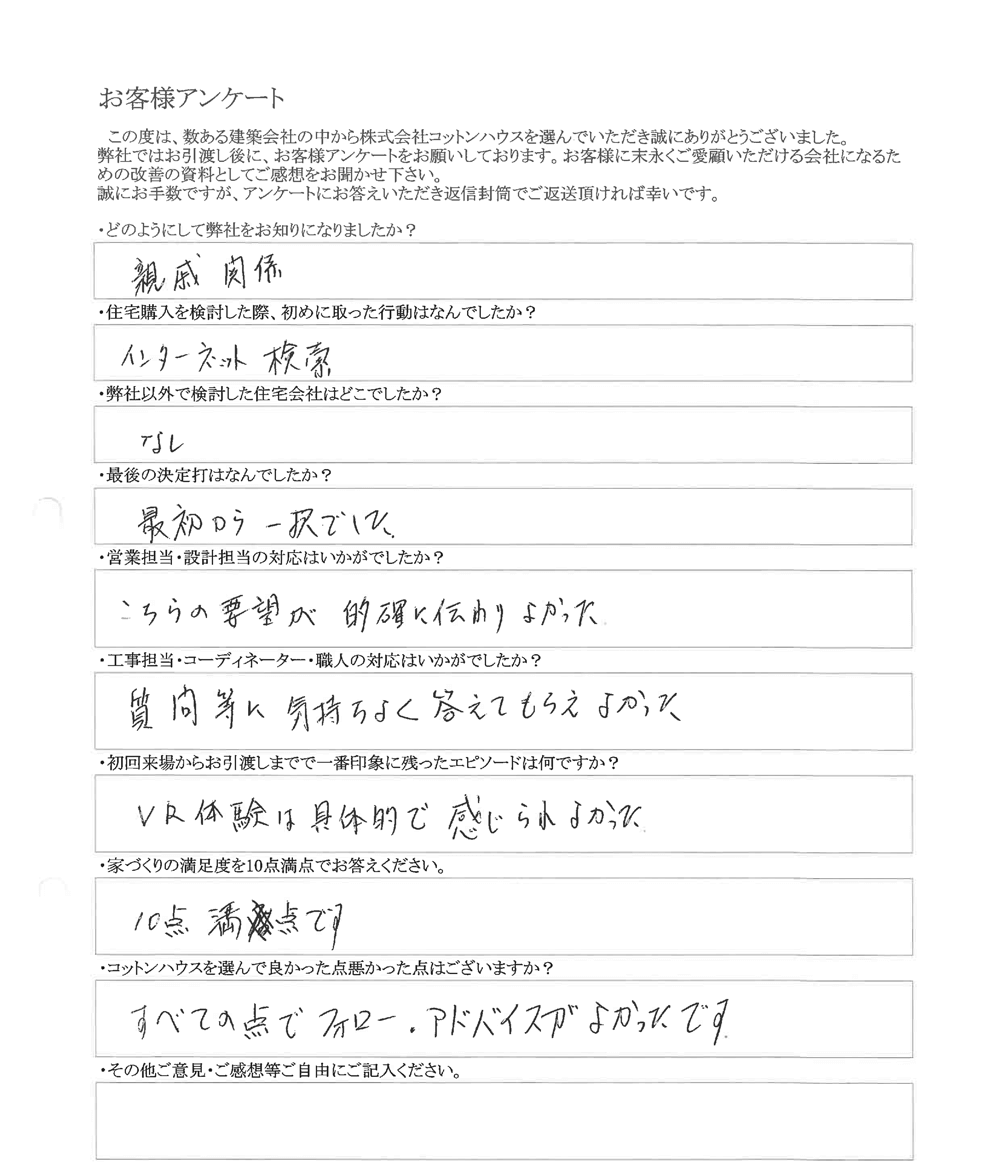 お客様アンケート
この度は、数ある建築会社の中から株式会社コットンハウスを選んでいただき誠にありがとうございました。
弊社ではお引渡し後に、お客様アンケートをお願いしております。お客様に末永くご愛顧いただける会社になるた
めの改善の資料としてご感想をお聞かせ下さい。
誠にお手数ですが、アンケートにお答えいただき返信封筒でご返送頂ければ幸いです。
・どのようにして弊社をお知りになりましたか？
親戚 関係
・住宅購入を検討した際、初めに取った行動はなんでしたか？
インターネット 検索
・弊社以外で検討した住宅会社はどこでしたか？
なし
・最後の決定打はなんでしたか？
最初から 一択でした。
・営業担当・設計担当の対応はいかがでしたか？
こちらの要望が 的確に伝わり よかった。
・工事担当・コーディネーター・職人の対応はいかがでしたか？
質問等に 気持ちよく 答えてもらえ よかった
・初回来場からお引渡しまでで一番印象に残ったエピソードは何ですか？
VR体験は具体的で 感じられ よかった。
・家づくりの満足度を10点満点でお答えください。
10点 満点です
・コットンハウスを選んで良かった点悪かった点はございますか？
すべての点で フォロー・アドバイスが よかったです。
・その他ご意見・ご感想等ご自由にご記入ください。